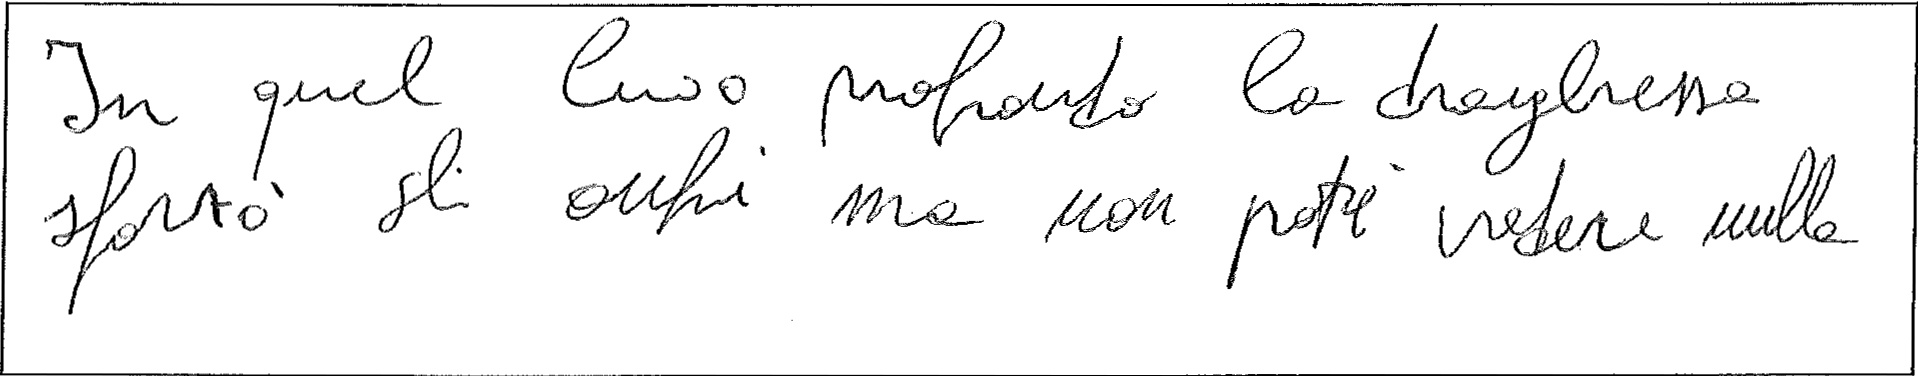 In quel profondo la draghessa
sforzò gli occhi ma non poté vedere nulla